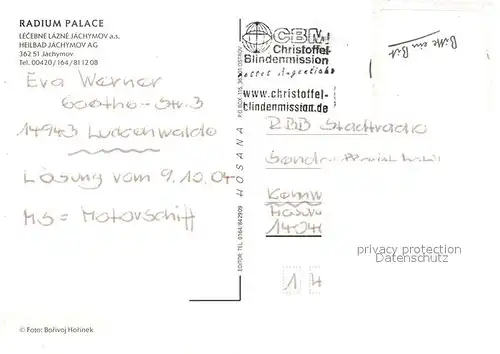 RADIUM PALACE
LÉČEBNÉ LÁZNĚ JÁCHYMOV a.s.
HEILBAD JÁCHYMOV AG
362 51 Jáchymov
Tel. 00420 / 164 / 81 12 08
Eva Werner
Goethe-Str. 3
14943 Luckenwalde
Lösung vom 9.10.04
MS = Motorschiff
© Foto: Bořivoj Hořínek
HOSANA
EDITOR: TEL. 0164/842909
CBM
Christoffel-
Blindenmission
rettet Augenlicht
www.christoffel-
blindenmission.de
Bitte ein Bit
RBB Stadtradio
14041
14
privacy protection
Datenschutz